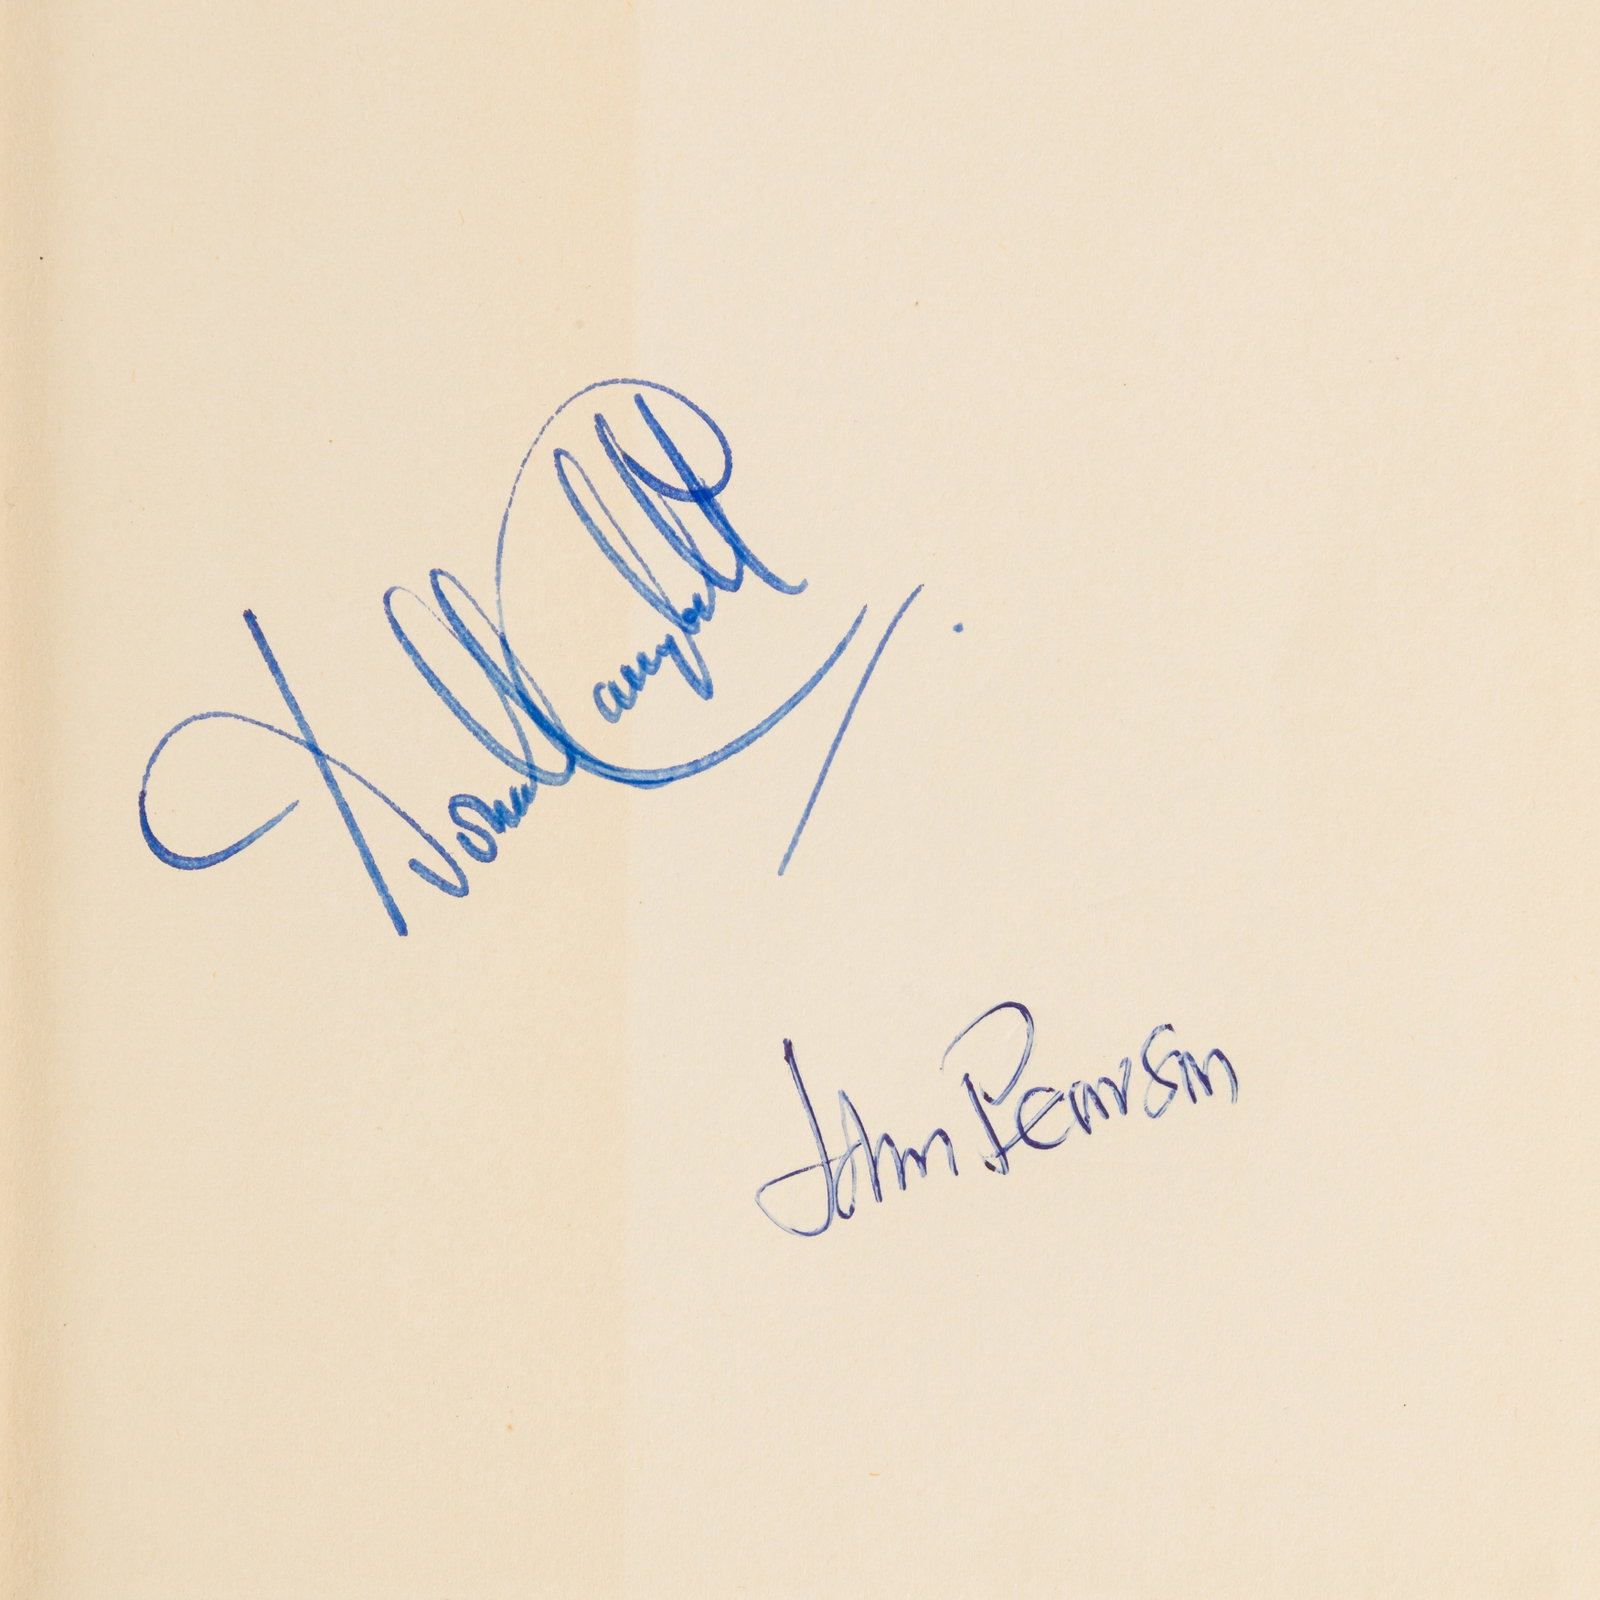 Donald Campbell
John Pearson